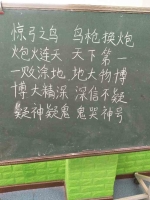 惊弓之鸟 鸟枪换炮
炮火连天 天下第一
一败涂地 地大物博
博大精深 深信不疑
疑神疑鬼 鬼哭神号